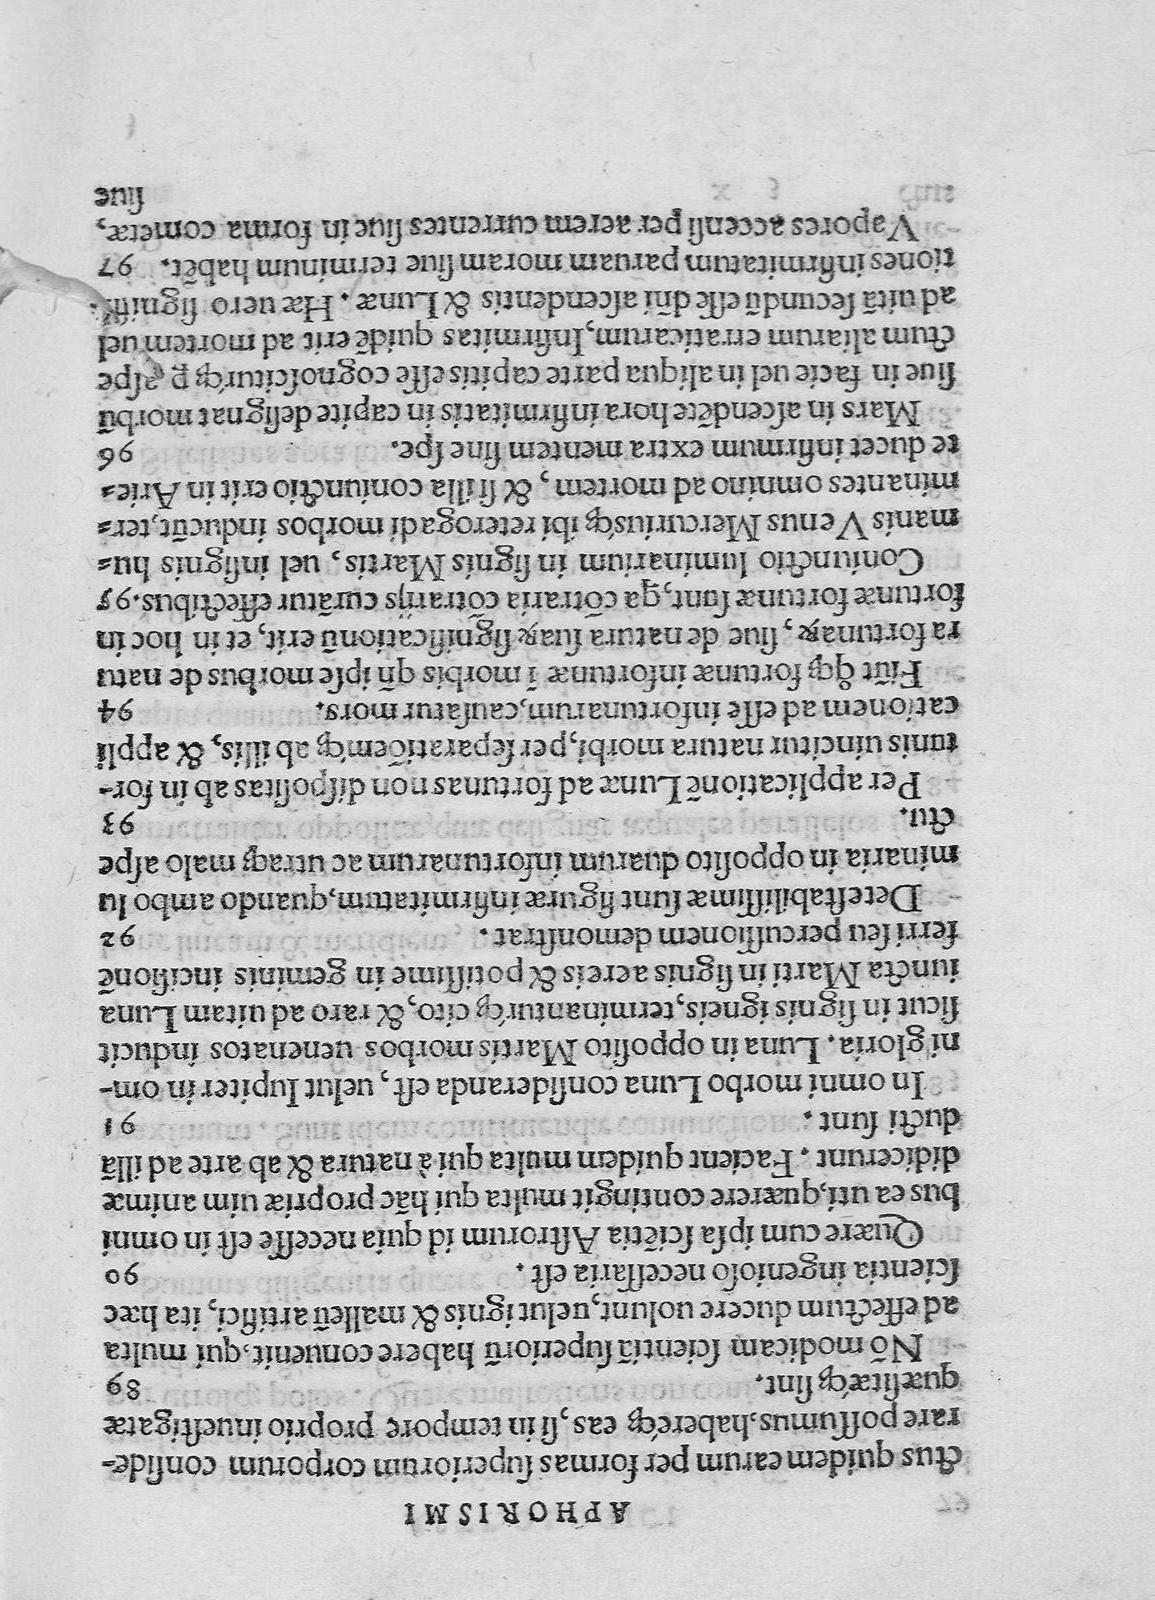 APHORISMI
ctus quidem earum per formas superiorum corporum conside-
rare possumus, haberéq; eas, si in tempore proprio inuestigatæ
quæsitæq; sint. 89
Nō modicam scientiā superiorū habere conuenit, qui multa
ad effectum ducere uolunt, uelut ignis & malleū artifici, ita hæc
scientia ingenioso necessaria est. 90
Quære cum ipsa sciētia Astrorum id quia necesse est in omni
bus ea uti, quærere contingit multa qui hāc propriæ uim animæ
didicerunt. Facient quidem multa qui à natura & ab arte ad illā
ducti sunt. 91
In omni morbo Luna consideranda est, uelut Iupiter in om-
ni gloria. Luna in opposito Martis morbos uenenatos inducit
sicut in signis igneis, terminanturq; cito, & raro ad uitam Luna
iuncta Marti in signis aereis & potissime in geminis incisionē
ferri seu percussionem demonstrat. 92
Detestabilissimæ sunt figuræ infirmitatum, quando ambo lu
minaria in opposito duarum infortunarum ac utraq; malo aspe
ctu. 93
Per applicationē Lunæ ad fortunas non dispositas ab in for-
tunis uincitur natura morbi, per separatiōemq; ab illis, & appli
cationem ad esse infortunarum, causatur mors. 94
Fiūt qñq; fortunæ infortunæ ī morbis qñ ipse morbus de natu
ra fortunaꝝ, siue de natura suaꝝ significationū erit, et in hoc in
fortunæ fortunæ sunt, qa cōtraria cōtrarijs curātur effectibus. 95
Coniunctio luminarium in signis Martis, uel insignis hu=
manis Venus Mercuriusq; ibi reterogadi morbos inducūt, ter=
minantes omnino ad mortem, & si illa coniunctio erit in Arie=
te ducet infirmum extra mentem sine spe. 96
Mars in ascendēte hora infirmitatis in capite designat morbū
siue in facie uel in aliqua parte capitis esse cognosciturq; ꝑ aspe
ctum aliarum erraticarum, Infirmitas quidē erit ad mortem uel
ad uitā secundū esse dñi ascendentis & Lunæ. Hæ uero signifi
tiones infirmitatum paruam moram siue terminum habēt. 97
Vapores accensi per aerem currentes siue in forma cometæ,
siue